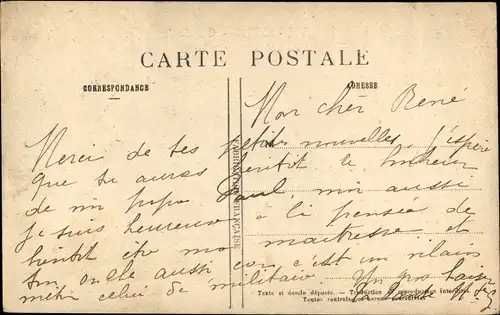 CARTE POSTALE
CORRESPONDANCE
ADRESSE
Mon cher René
Merci de tes petites nouvelles, j'espère
que tu auras bientôt le bonheur
de mi Paul, moi aussi
je suis heureuse à la pensée de
bientôt être ma maîtresse et
ton oncle aussi car c'est un vilain
métier celui de militaire Un gros baiser
FABRICATION FRANÇAISE
Texte et dessin déposés. — Traduction et reproduction interdites.
Toutes contrefaçons seront